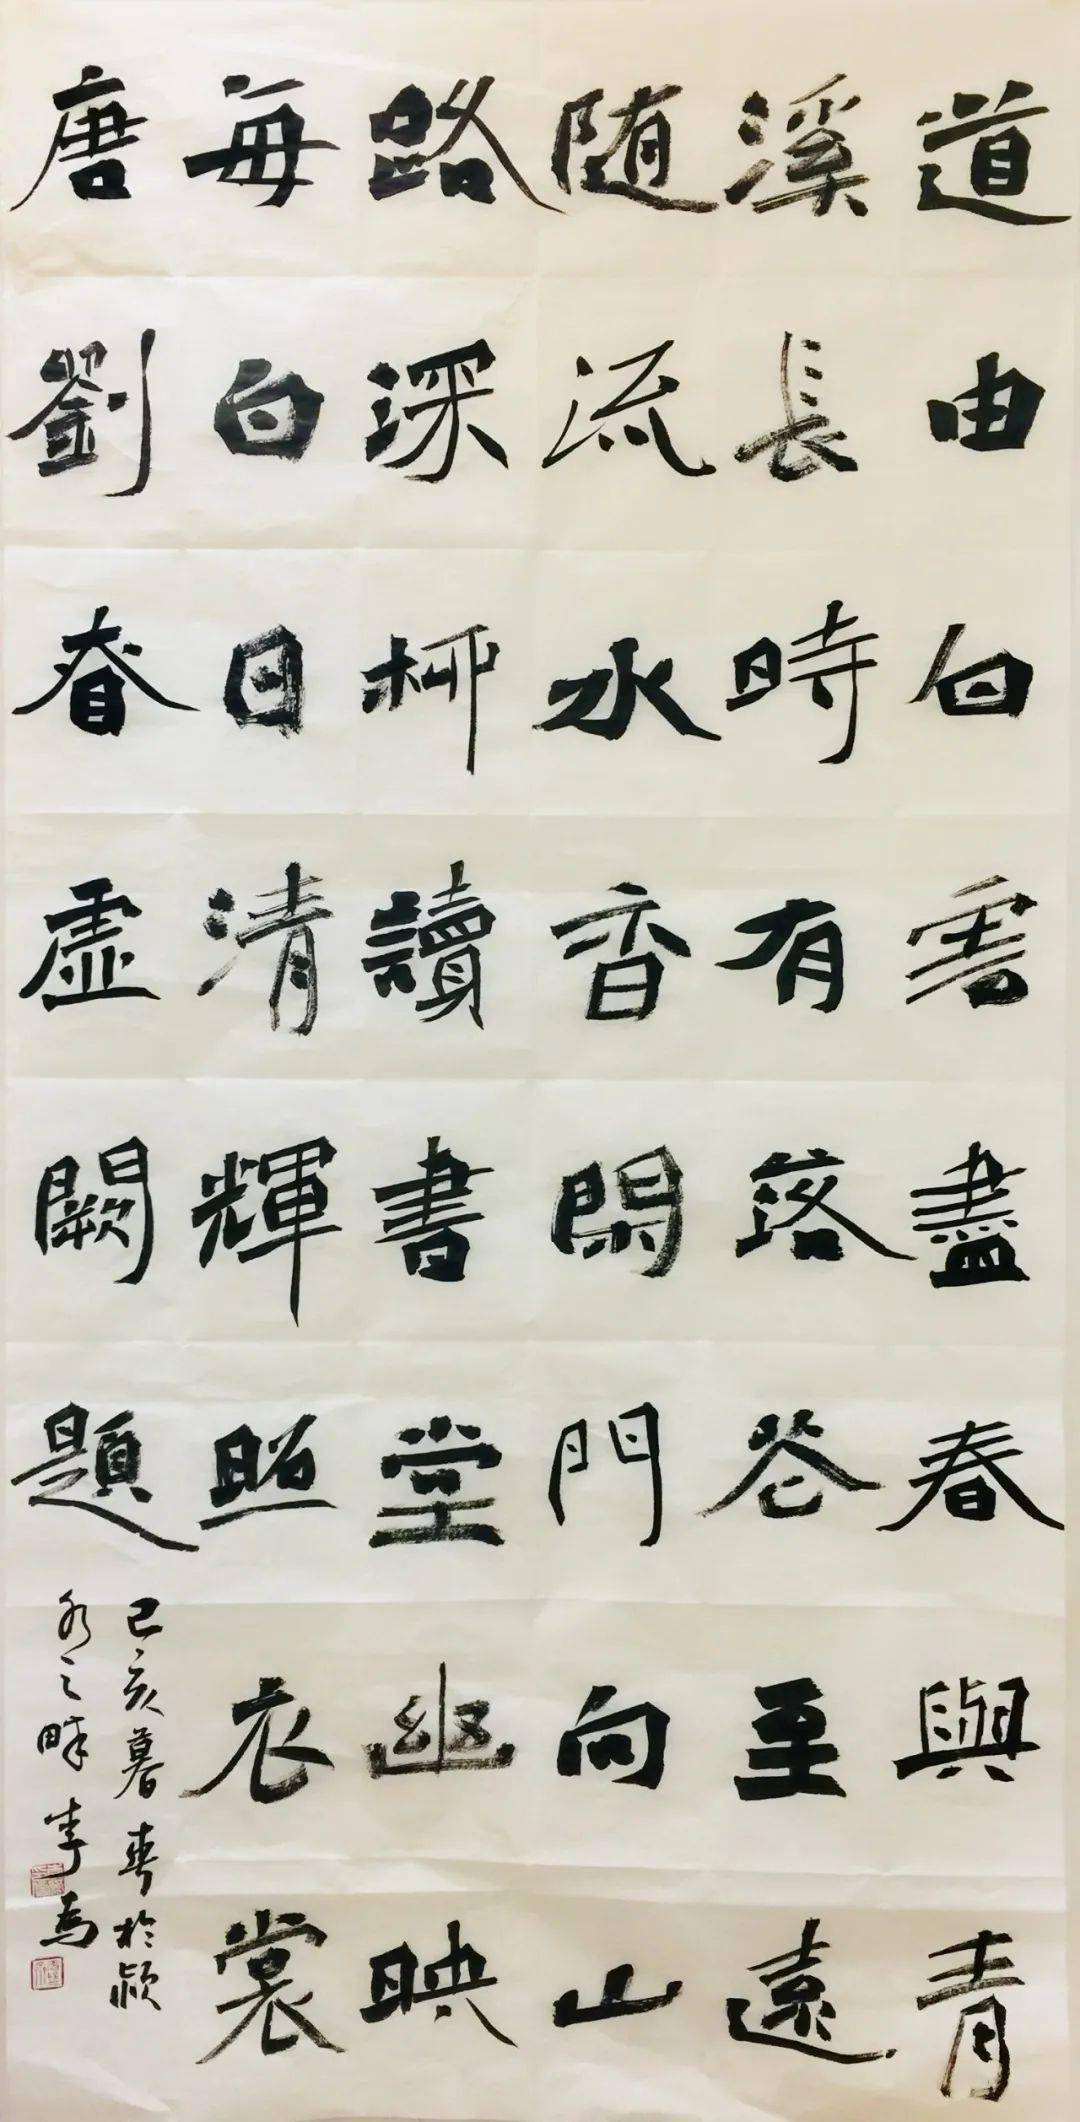 道由白雲盡春與青
溪長時有落花至遠
随流水香閑門向山
路深柳讀書堂幽映
每白日清輝照衣裳
唐劉眘虛闕題
己亥暮春於潁
水之畔李